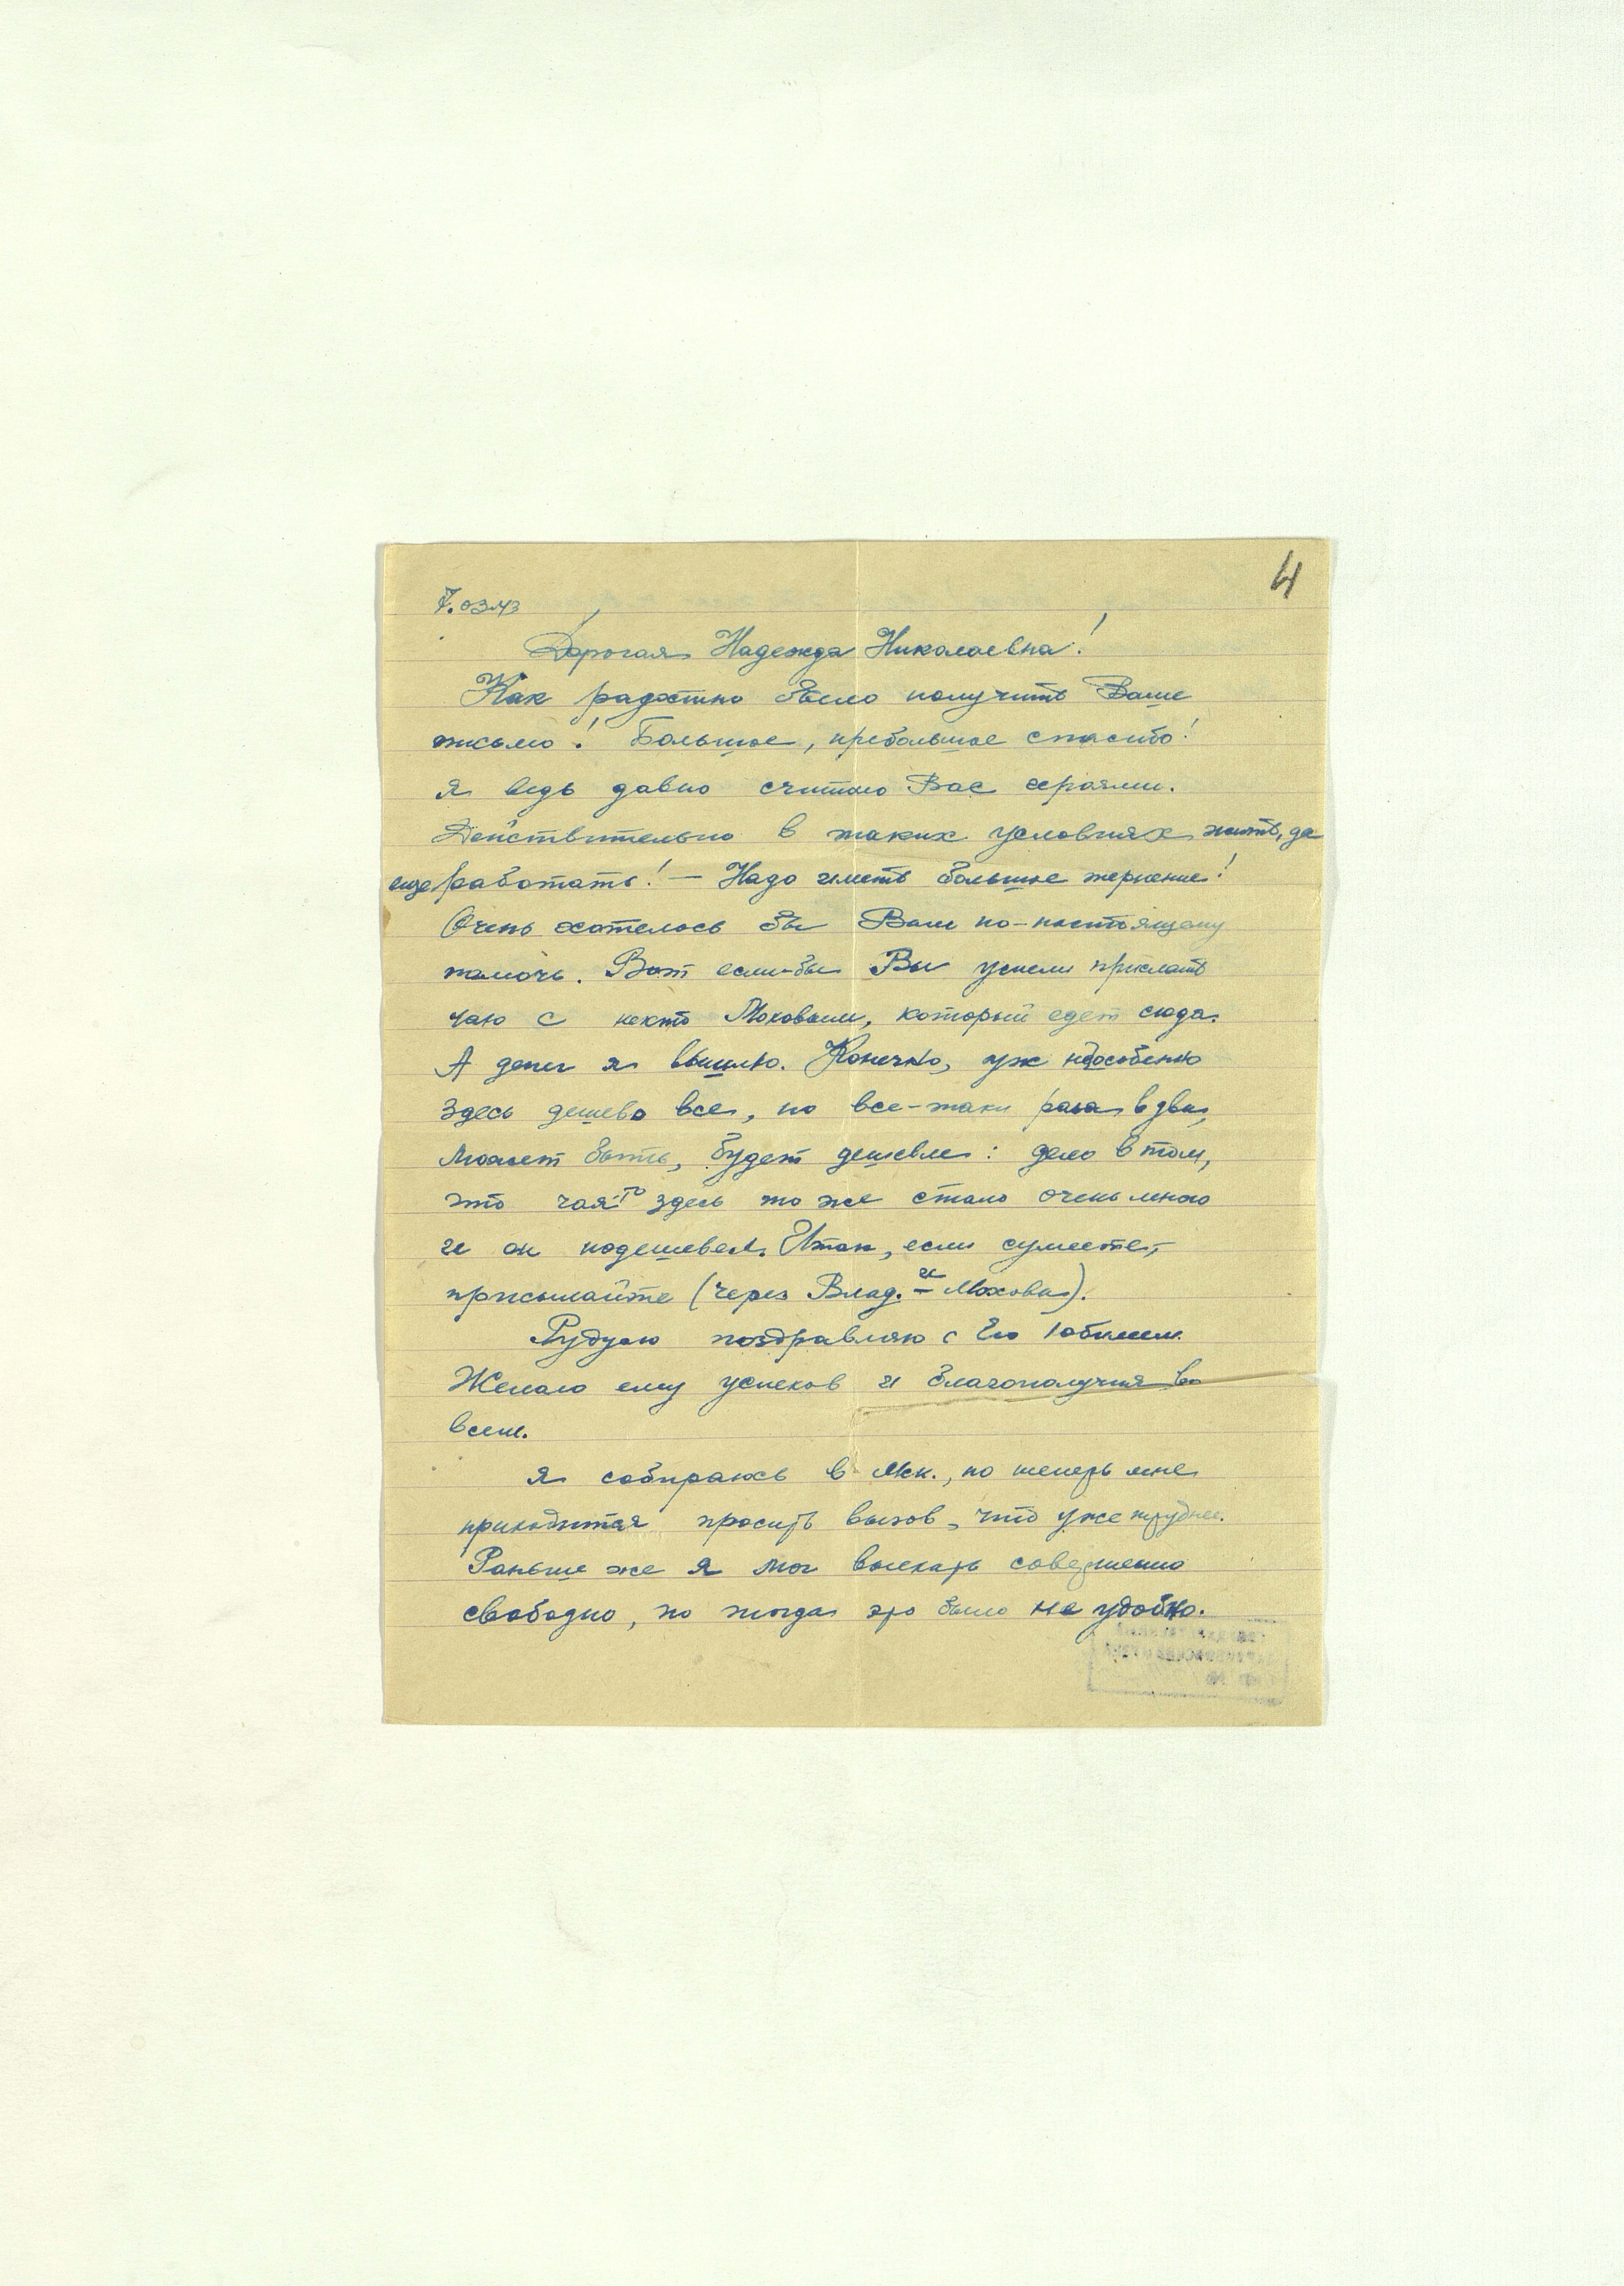 4
7.03.43
Дорогая Надежда Николаевна!
Как радостно было получить Ваше
письмо! Большое, пребольшое спасибо!
Я ведь давно считаю Вас героями.
Действительно в таких условиях жить, да
еще работать! — Надо иметь большое терпение!
Очень хотелось бы Вам по-настоящему
помочь. Вот если-бы Вы успели прислать
чаю с некто Моховым, который едет сюда.
А денег я вышлю. Конечно, уж не особенно
здесь дешево все, но все-таки раза в два,
может быть, будет дешевле: дело в том,
что чая-то здесь то же стало очень мало
и он подешевел. Итак, если сумеете,
присылайте (через Влад. И Мохова).
поздравляю с Его юбилеем.
Желаю ему успехов и благополучия во
всем.
Я собираюсь в Мск., но теперь мне
приходится просить вызов, что уже труднее.
Раньше же я мог выехать совершенно
свободно, но тогда это было не удобно.